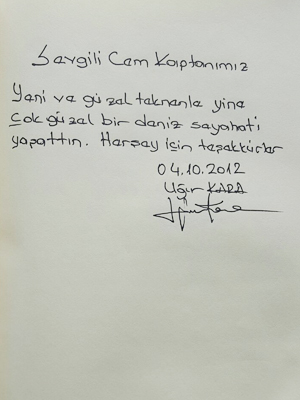 Sevgili Cem Kaptanımız
Yeni ve güzel teknenle yine
çok güzel bir deniz seyahati
yapattın. Herşey için teşekkürler
04.10.2012
Uğur KARA